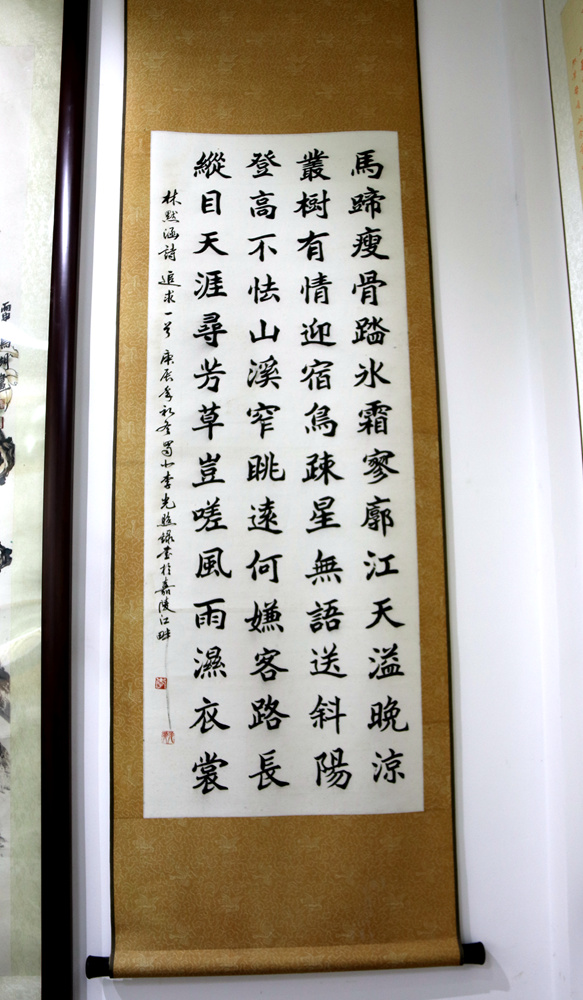 馬蹄瘦骨踏氷霜寥廓江天溢晚涼
叢樹有情迎宿鳥疎星無語送斜陽
登高不怯山溪窄眺遠何嫌客路長
縱目天涯尋芳草豈嗟風雨濕衣裳
林默涵詩追求一首庚辰年初冬蜀北李光臨錄書於嘉陵江畔